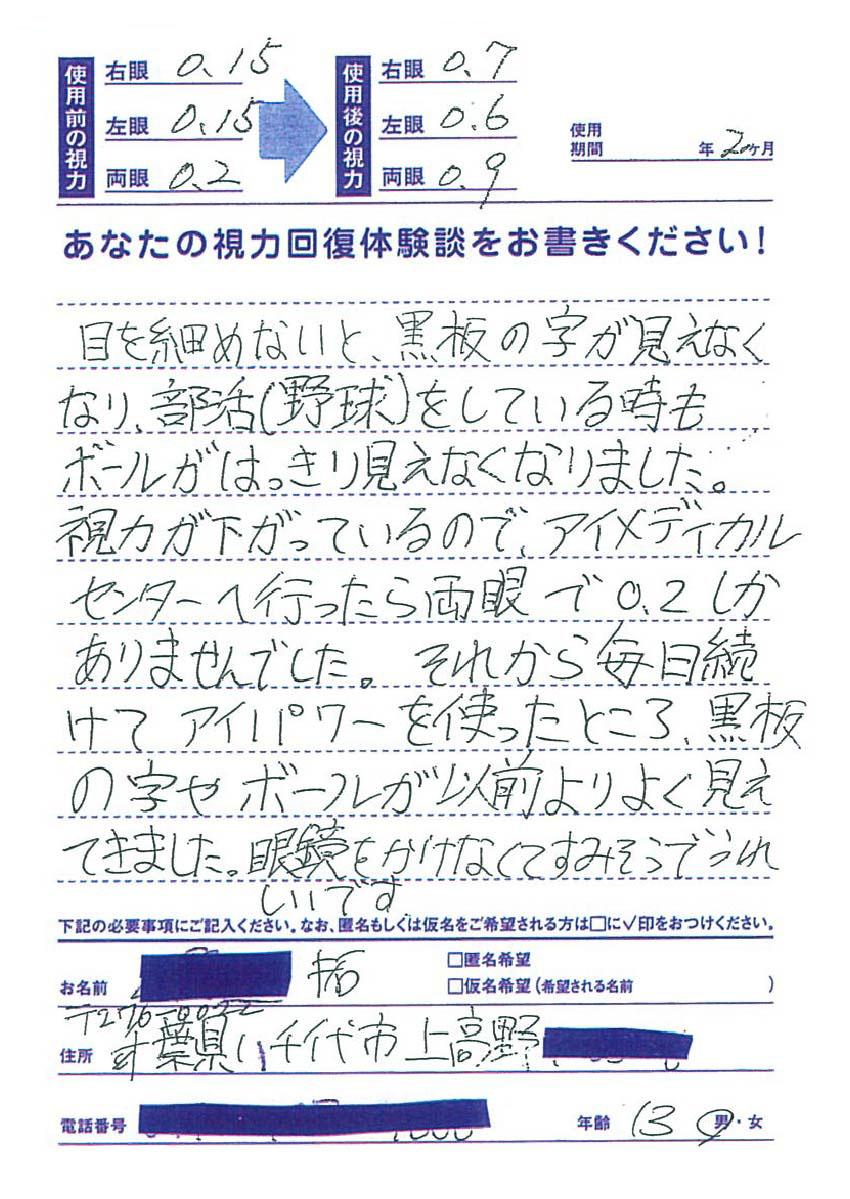 使用前の視力
右眼 0.15
左眼 0.15
両眼 0.2
使用後の視力
右眼 0.7
左眼 0.6
両眼 0.9
使用期間 年 2ヶ月
あなたの視力回復体験談をお書きください!
目を細めないと、黒板の字が見えなく
なり、部活(野球)をしている時も
ボールがはっきり見えなくなりました。
視力が下がっているので、アイメディカル
センターへ行ったら両眼で0.2しか
ありませんでした。それから毎日続
けてアイパワーを使ったところ、黒板
の字やボールが以前よりよく見え
てきました。眼鏡をかけなくてすみそうでうれ
しいです
下記の必要事項にご記入ください。なお、匿名もしくは仮名をご希望される方は□に✓印をおつけください。
お名前 様
□匿名希望
□仮名希望(希望される名前 )
〒276-0022
住所 千葉県八千代市上高野
電話番号
年齢 13 男・女